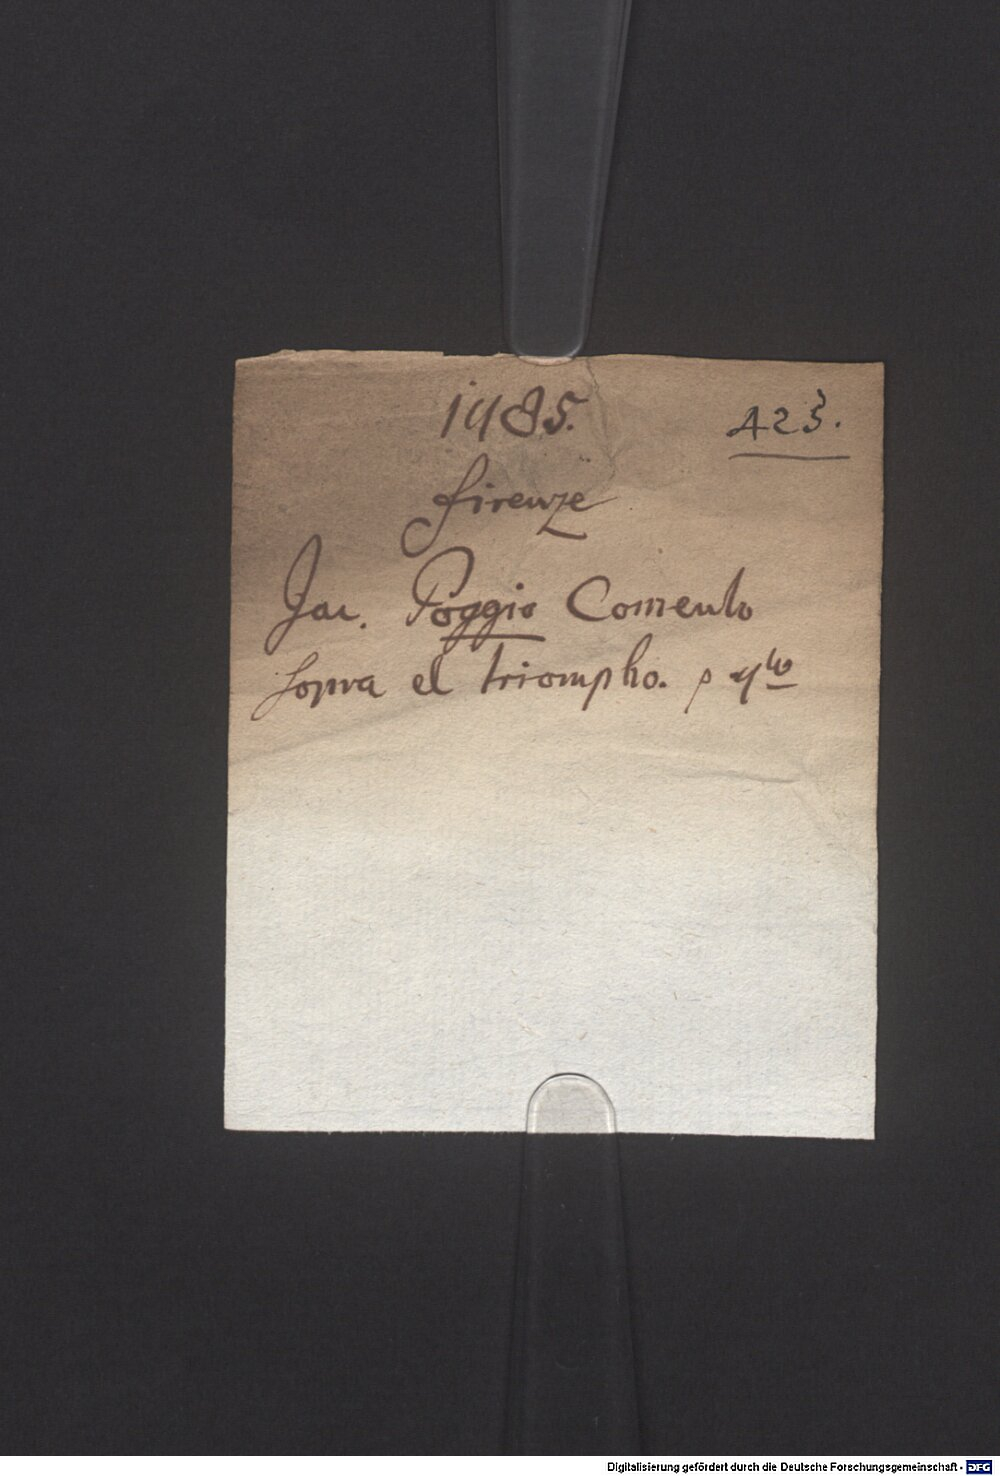 1485.
423.
Firenze
Jac. Poggio Comento
sopra el triompho. p 4to
Digitalisierung gefördert durch die Deutsche Forschungsgemeinschaft - DFG